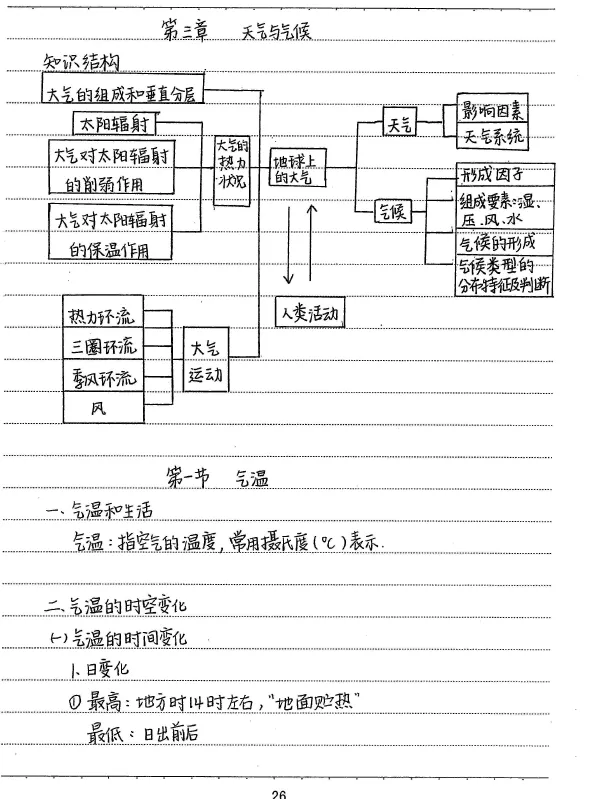 第三章 天气与气候
知识结构
大气的组成和垂直分层
太阳辐射
大气对太阳辐射
的削弱作用
大气对太阳辐射
的保温作用
大气的
热力
状况
地球上
的大气
天气
影响因素
天气系统
气候
形成因子
组成要素:湿、
压、风、水
气候的形成
气候类型的
分布特征及判断
人类活动
热力环流
三圈环流
季风环流
风
大气
运动
第一节 气温
一、气温和生活
气温:指空气的温度,常用摄氏度(℃)表示.
二、气温的时空变化
(一)气温的时间变化
1、日变化
① 最高:地方时14时左右,“地面贮热”
最低:日出前后
26